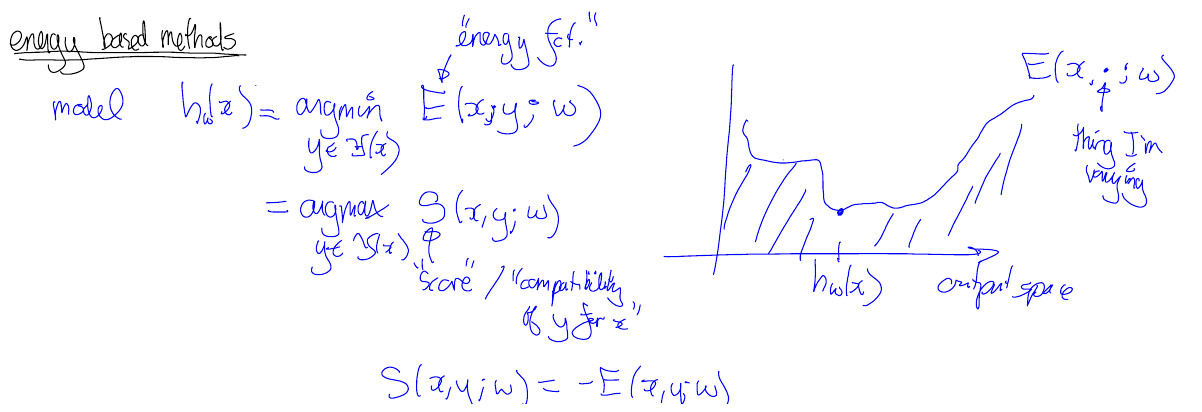 energy based methods
"energy fct."
model h_w(x) = argmin E(x,y;w)
y∈𝒴(x)
= argmax S(x,y;w)
y∈𝒴(x)
"score" / "compatibility
of y for x"
S(x,y;w) = -E(x,y;w)
E(x,·;w)
thing I'm
varying
h_w(x)
output space